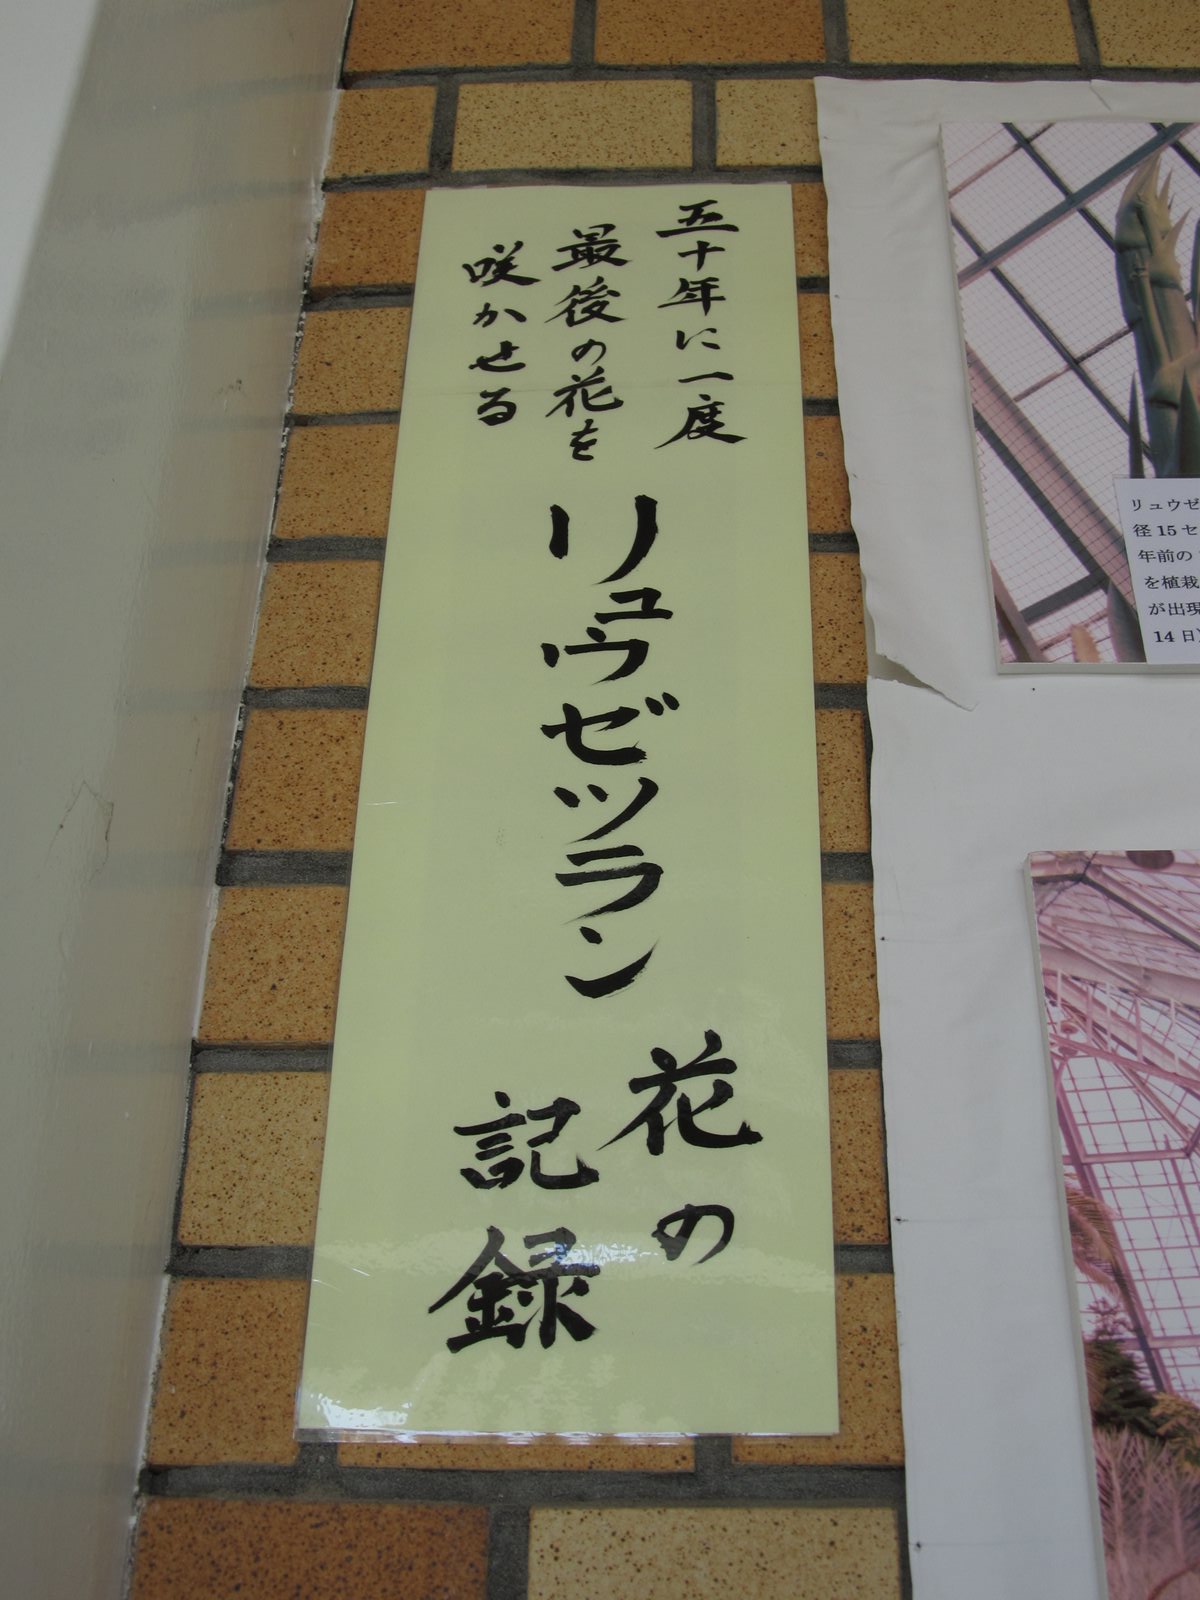 五十年に一度
最後の花を
咲かせる
リュウゼツラン
花の
記録
リュウゼ
径15セ
年前の
を植栽
が出現
14日